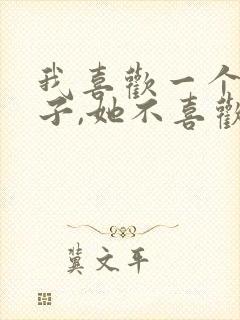 我喜歡一个
子,她不喜歡
冀文平